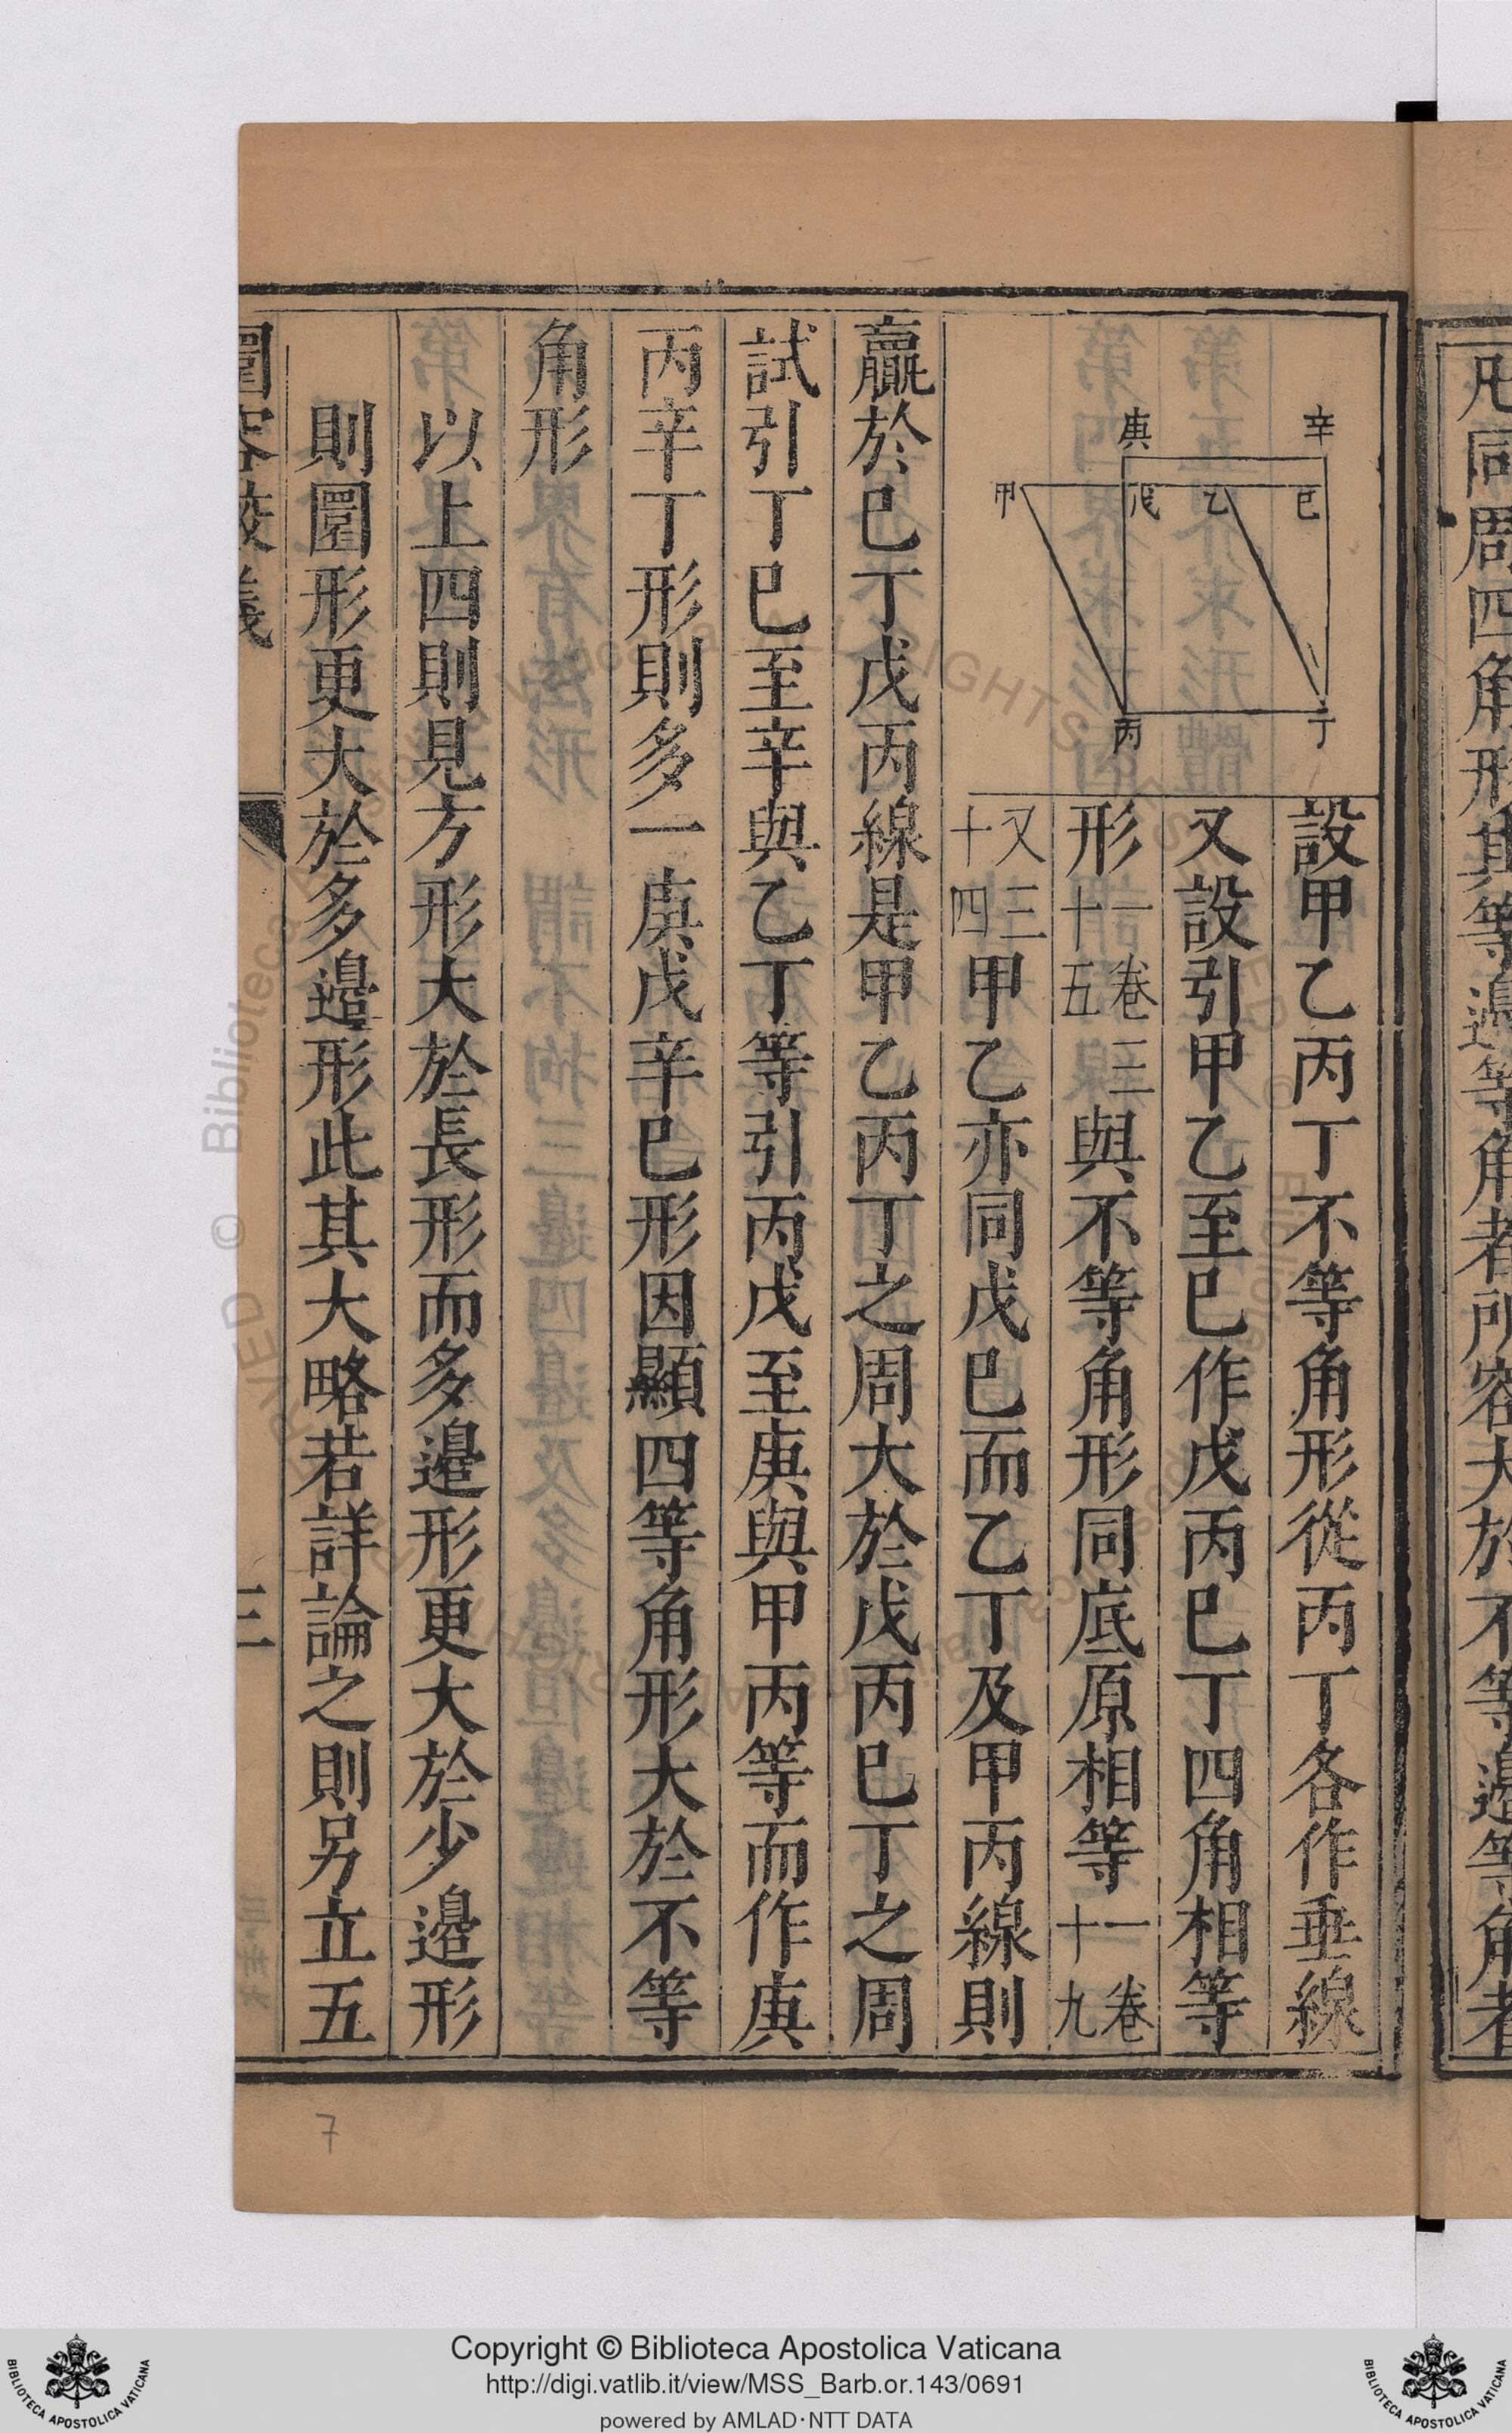 凡同周四角形其等邊等角者所容大於不等邊等角者
辛
庚
己
乙
戊
甲
丁
丙
設甲乙丙丁不等角形從丙丁各作垂線
又設引甲乙至巳作戊丙巳丁四角相等
形一卷三十五與不等角形同底原相等一卷十九
又三十四甲乙亦同戊巳而乙丁及甲丙線則
贏於巳丁戊丙線是甲乙丙丁之周大於戊丙巳丁之周
試引丁巳至辛與乙丁等引丙戊至庚與甲丙等而作庚
丙辛丁形則多一庚戊辛巳形因顯四等角形大於不等
角形
以上四則見方形大於長形而多邊形更大於少邊形
則圜形更大於多邊形此其大略若詳論之則另立五
圜容較義
三
7
© Biblioteca
Copyright © Biblioteca Apostolica Vaticana
http://digi.vatlib.it/view/MSS_Barb.or.143/0691
powered by AMLAD·NTT DATA
BIBLIOTECA APOSTOLICA VATICANA
BIBLIOTECA APOSTOLICA VATICANA